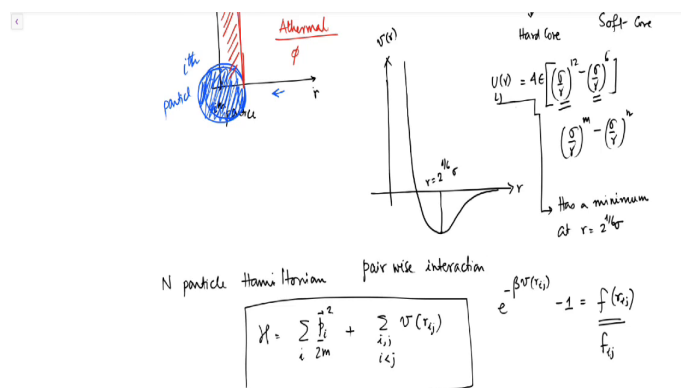 Athermal
φ
ith
particle
particle
r
v(r)
r = 2^{1/6} σ
r
Hard Core
Soft-Core
U(r) = 4ϵ[(σ/r)^{12} - (σ/r)^{6}]
LJ
(σ/r)^{m} - (σ/r)^{n}
Has a minimum
at r = 2^{1/6}σ
N particle Hamiltonian
pair wise interaction
H = ∑_{i} p⃗_{i}^{2}/2m + ∑_{i,j i<j} v(r_{ij})
e^{-βv(r_{ij})} - 1 = f(r_{ij})
f_{ij}